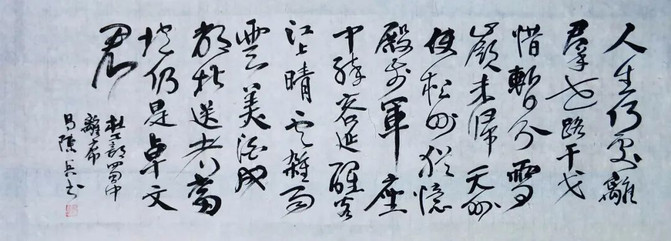 人生何處離
群世路干戈
惜暫分雪
嶺未歸天外
使松州猶憶
殿前軍座
中醉客延醒客
江上晴雲雜雨
雲美酒成
都堪送老當
壚仍是卓文
君
杜工部蜀中
離席